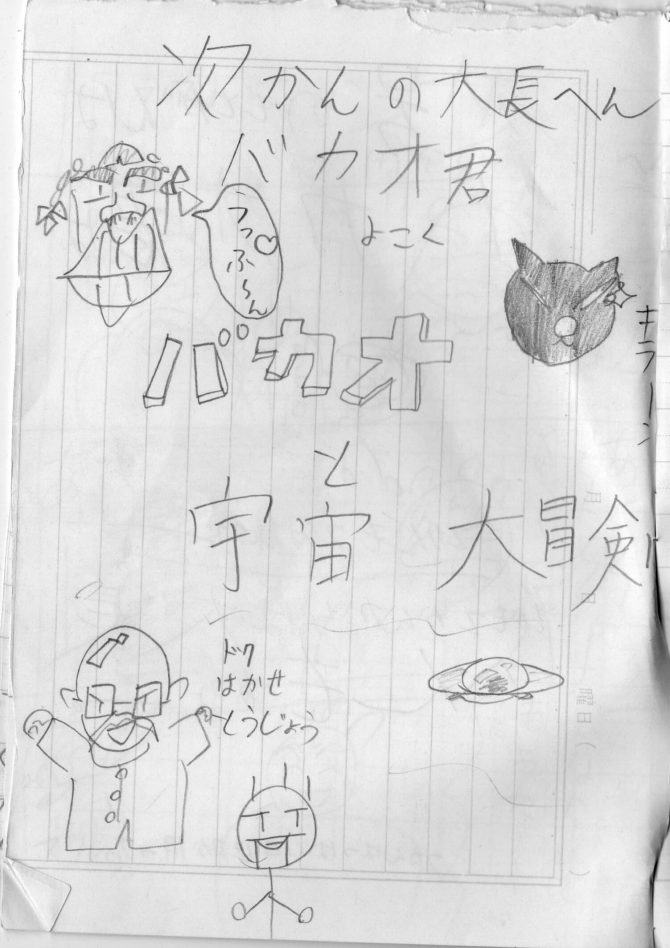 次かんの大長へん
バカオ君
よこく
うっふ〜ん
キラーン
バカオ
と
宇宙 大冒険
ドク
はかせ
とうじょう
月
日
曜日(
)